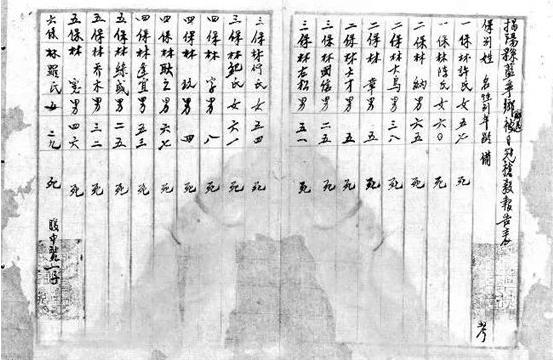 揭陽縣藍羊鄉被日寇槍殺報告表
保別姓名性別年齡備考
一保林許氏女五七死
一保林陳氏女六〇死
二保林納男六五死
二保林大烏男三八死
二保林章男五死
二保林大才男五死
三保林國信男二五死
三保林老松男五一死
三保林何氏女五四死
三保林紀氏女六一死
四保林字男八死
四保林欽男四死
四保林耿之男六七死
四保林逢宜男五三死
五保林綿盛男二五死
五保林喬木男三二死
五保林寬男四六死
六保林羅氏女二九死
腹中殆一子